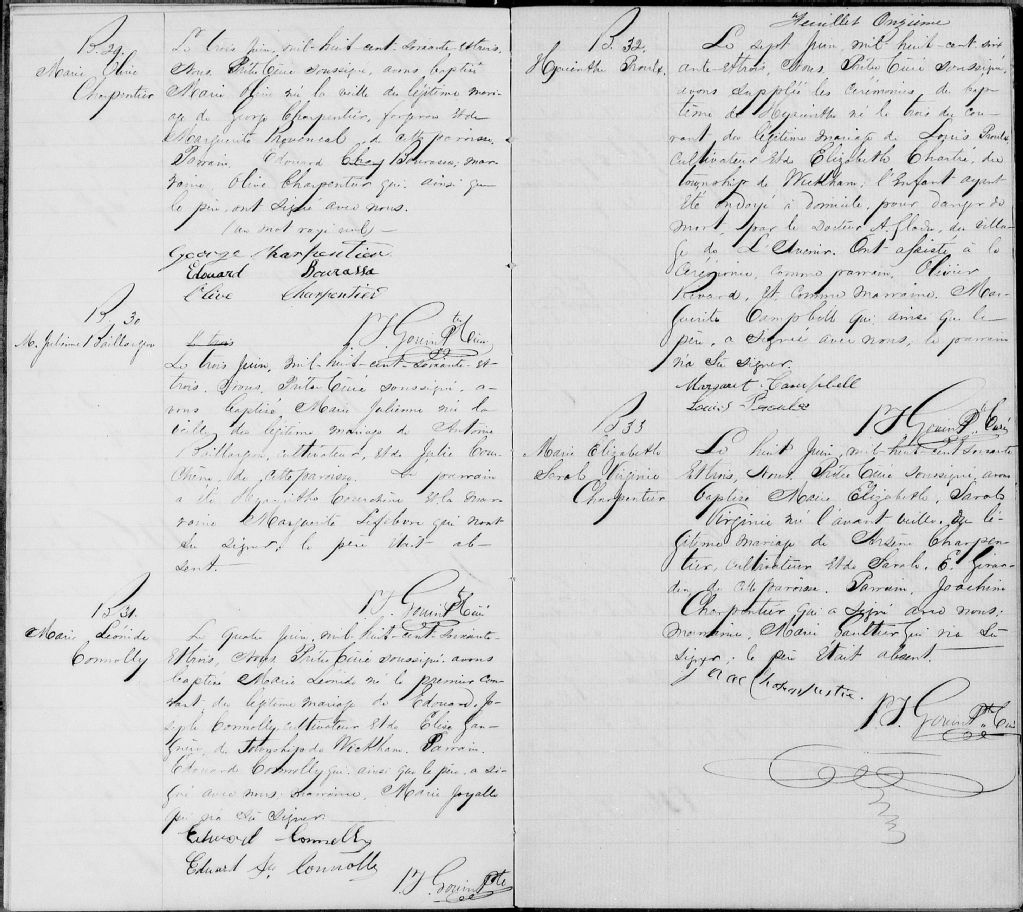 B. 29.
Marie Olive
Charpentier
Le trois Juin, mil-huit-cent-soixante-et-trois.
Nous Prêtre Curé soussigné, avons baptisé
Marie Olive né la veille du légitime mari-
age de George Charpentier, forgeron et de
Marguerite Provencal de cette paroisse.
Parrain Edouard Bourassa; mar-
raine, Olive Charpentier qui ainsi que
le père, ont signé avec nous.
(un mot rayé nul) -
George Charpentier
Edouard Bourassa
Olive Charpentier
P. J. Gouin Ptre Curé
B 30
M. Julienne
Le trois Juin, mil-huit-cent-soixante-et-
trois. Nous, Prêtre Curé soussigné, a-
vons baptisé, Marie Julienne née la
veille, du légitime mariage de Antoine
cultivateur, et de Julie Cou-
chène, de cette paroisse. Le parrain
a été Hyacinthe et la mar-
raine Marguerite Lefebvre qui n'ont
su signer; le père était ab-
sent.
P. J. Gouin Ptre Curé
B 31.
Marie Léonide
Connolly
Le quatre Juin, mil-huit-cent-soixante-
et-trois, Nous Prêtre Curé soussigné avons
baptisé Marie Leonide né le premier cou-
rant, du légitime mariage de Edouard Jo-
seph Connolly cultivateur et de Elise
de Township de Wickham. Parrain.
Edouard Connolly qui ainsi que le père, a si-
gné avec nous; marraine, Marie Joyalle
qui n'a su signer
Edward Connolly
Edward Connolly
P. J. Gouin Ptre
Feuillet Onzième
B. 32.
Hyacinthe Proulx.
Le sept Juin, mil huit-cent soix-
ante-et-trois, Nous Prêtre Curé soussigné,
avons suppléé les cérémonies, du bap-
tême de Hyacinthe né le trois du cou-
rant, du légitime mariage de Louis Proulx
cultivateur et de Elizabeth Chartré, du
township de Wickham; l'enfant ayant
été ondoyé à domicile, pour danger de
mort, par le Docteur du villa-
ge de L'Avenir. Ont assisté à la
Cérémonie, comme parrain, Olivier
et comme marraine. Mar-
guerite Campbell qui ainsi que le
père, a signé avec nous, le parrain
n'a su signer.
Margaret Campbell
Louis Proulx
P. J. Gouin Ptre Curé
B 33
Marie Elizabeth
Sarah Virginie
Charpentier
Le huit Juin, mil-huit-cent soixante
et trois, Nous, Prêtre Curé soussigné, avons
baptisé Marie Elizabeth, Sarah
Virginie né l'avant veille, du lé-
gitime mariage de Arsène Charpen-
tier, cultivateur et de Sarah. E.
de cette paroisse. Parrain, Joachim
Charpentier qui a signé avec nous;
marraine, Marie Gaultier qui n'a su
signer; le père était absent.
Charpentier.
P. J. Gouin Ptre Curé